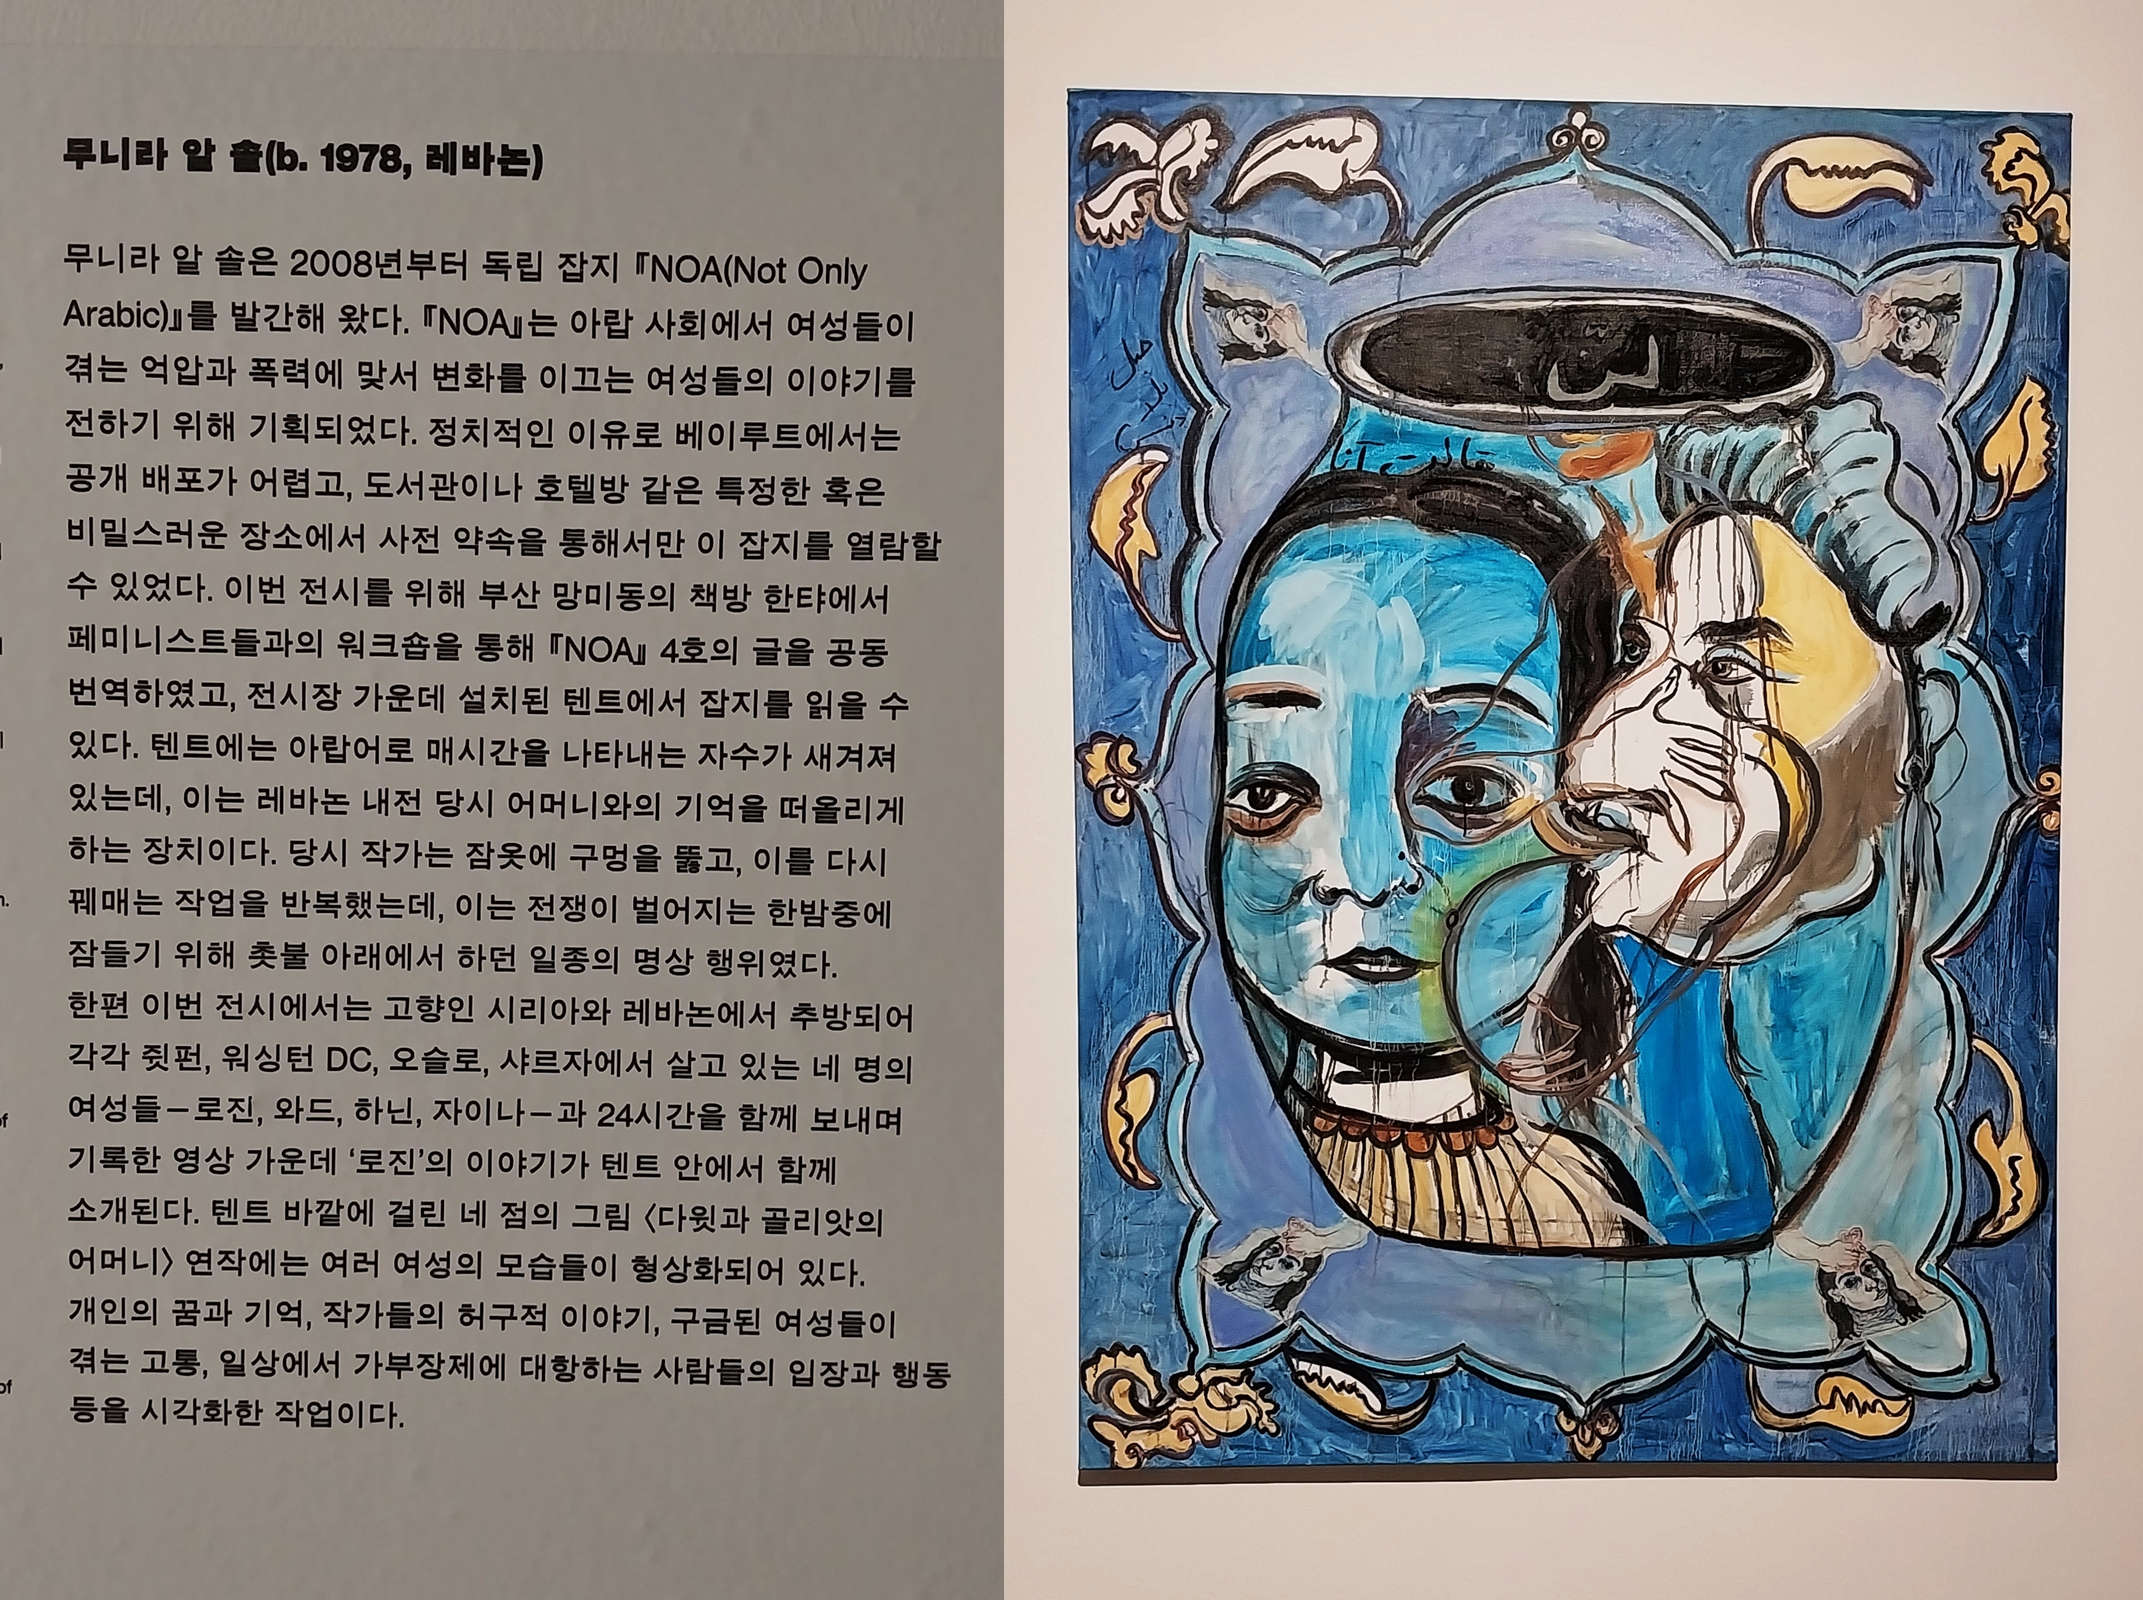 무니라 알 솔(b. 1978, 레바논)
무니라 알 솔은 2008년부터 독립 잡지 『NOA(Not Only
Arabic)』를 발간해 왔다. 『NOA』는 아랍 사회에서 여성들이
겪는 억압과 폭력에 맞서 변화를 이끄는 여성들의 이야기를
전하기 위해 기획되었다. 정치적인 이유로 베이루트에서는
공개 배포가 어렵고, 도서관이나 호텔방 같은 특정한 혹은
비밀스러운 장소에서 사전 약속을 통해서만 이 잡지를 열람할
수 있었다. 이번 전시를 위해 부산 망미동의 책방 한탸에서
페미니스트들과의 워크숍을 통해 『NOA』 4호의 글을 공동
번역하였고, 전시장 가운데 설치된 텐트에서 잡지를 읽을 수
있다. 텐트에는 아랍어로 매시간을 나타내는 자수가 새겨져
있는데, 이는 레바논 내전 당시 어머니와의 기억을 떠올리게
하는 장치이다. 당시 작가는 잠옷에 구멍을 뚫고, 이를 다시
꿰매는 작업을 반복했는데, 이는 전쟁이 벌어지는 한밤중에
잠들기 위해 촛불 아래에서 하던 일종의 명상 행위였다.
한편 이번 전시에서는 고향인 시리아와 레바논에서 추방되어
각각 쥣펀, 워싱턴 DC, 오슬로, 샤르자에서 살고 있는 네 명의
여성들–로진, 와드, 하닌, 자이나–과 24시간을 함께 보내며
기록한 영상 가운데 ‘로진’의 이야기가 텐트 안에서 함께
소개된다. 텐트 바깥에 걸린 네 점의 그림 〈다윗과 골리앗의
어머니〉 연작에는 여러 여성의 모습들이 형상화되어 있다.
개인의 꿈과 기억, 작가들의 허구적 이야기, 구금된 여성들이
겪는 고통, 일상에서 가부장제에 대항하는 사람들의 입장과 행동
등을 시각화한 작업이다.
قالت أنا